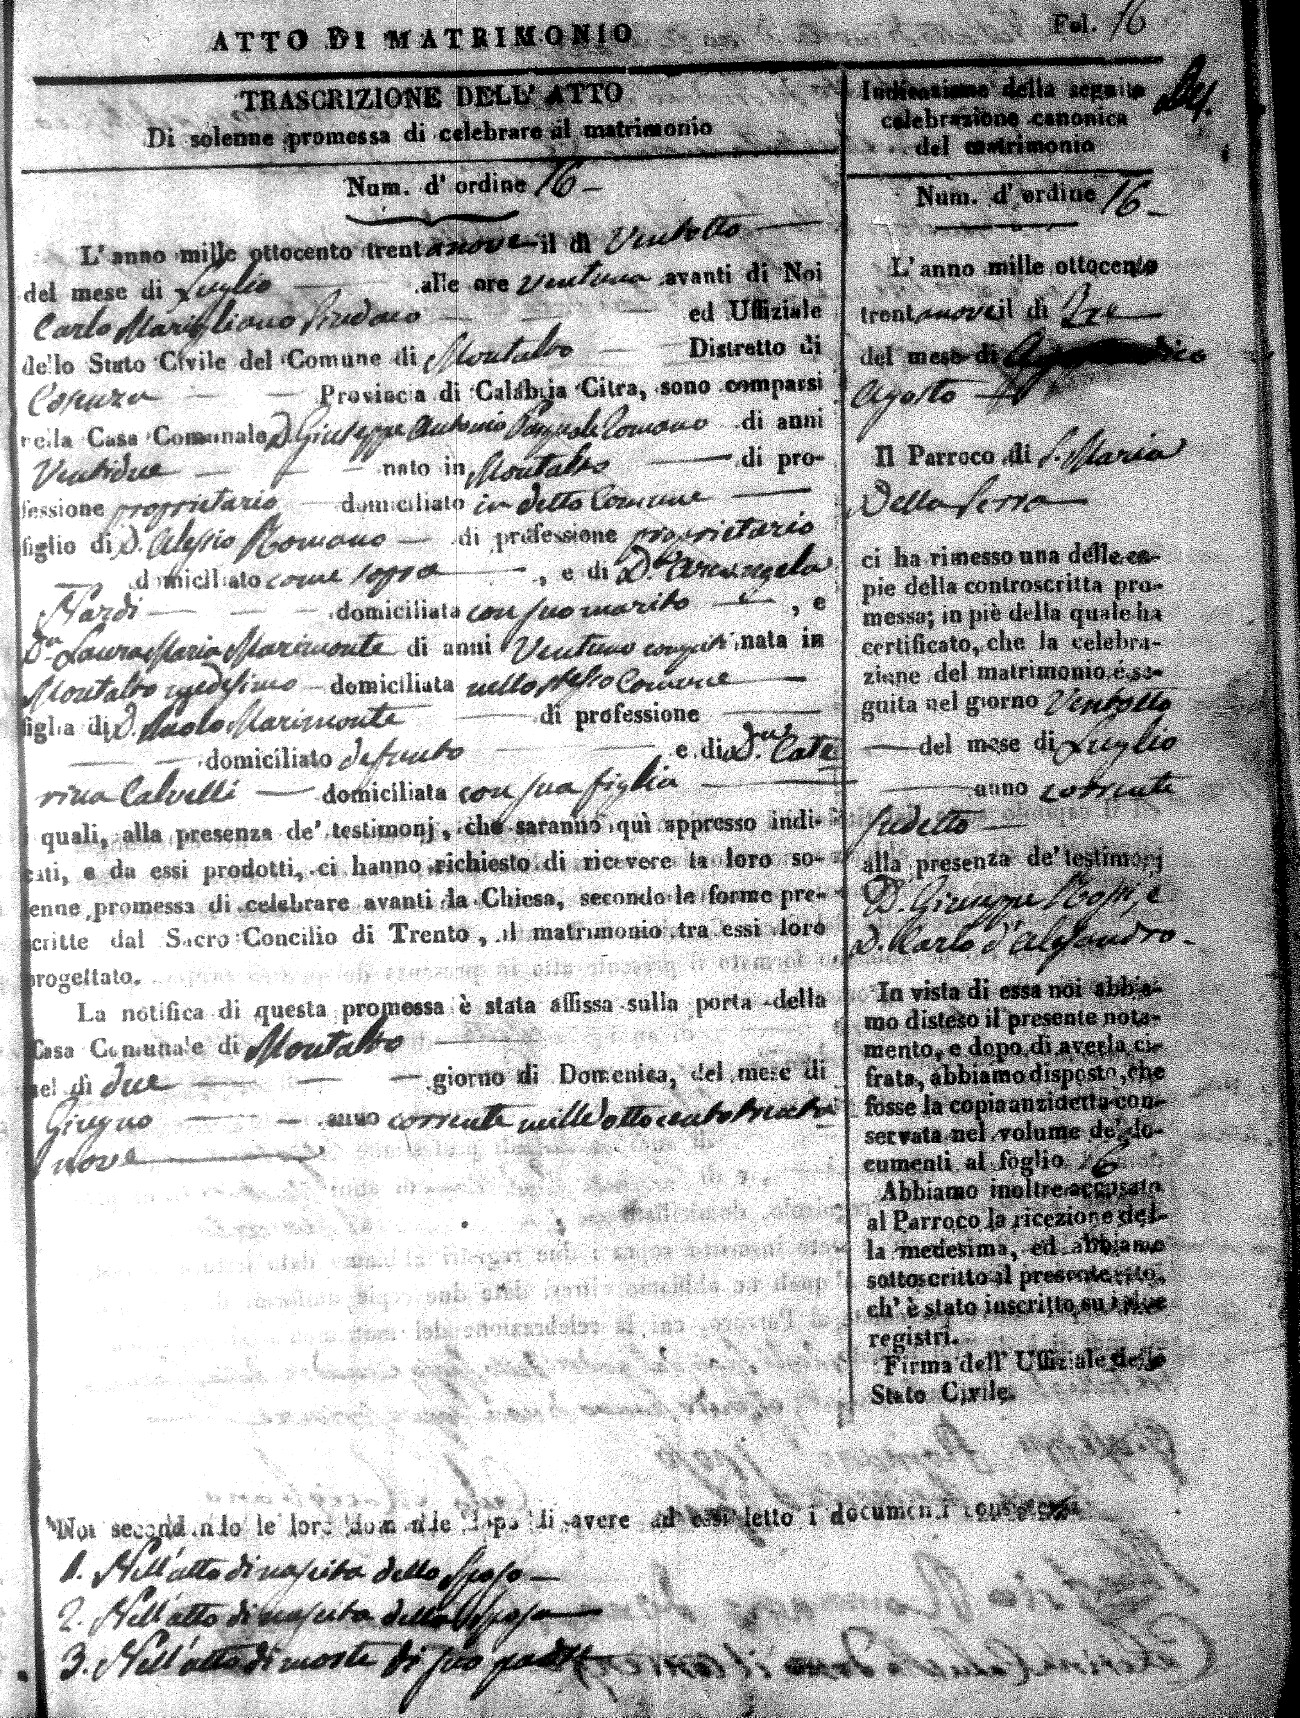 ATTO DI MATRIMONIO
Fol. 16
TRASCRIZIONE DELL' ATTO
Di solenne promessa di celebrare il matrimonio
Num. d' ordine 16 -
L' anno mille ottocento trentanove il dì Ventotto
del mese di Luglio alle ore ventuna avanti di Noi
Carlo Marigliano Sindaco ed Uffiziale
dello Stato Civile del Comune di Montalto Distretto di
Cosenza Provincia di Calabria Citra, sono comparsi
nella Casa Comunale D. Giuseppe Antonio Pasquale Romano di anni
Ventidue nato in Montalto di pro-
fessione proprietario domiciliato in detto Comune
figlio di D. Alessio Romano di professione proprietario
domiciliato come sopra , e di D.a Arcangela
Nardi domiciliata con suo marito , e
D.na Laura Maria Marimonte di anni Ventuno nata in
Montalto medesimo domiciliata nello stesso Comune
figlia di D. Paolo Marimonte di professione
domiciliato defunto e di D.na Cate
rina Calvelli domiciliata con sua figlia
i quali, alla presenza de' testimonj, che saranno quì appresso indi-
cati, e da essi prodotti, ci hanno richiesto di ricevere la loro so-
lenne promessa di celebrare avanti la Chiesa, secondo le forme pre-
scritte dal Sacro Concilio di Trento, il matrimonio tra essi loro
progettato.
La notifica di questa promessa è stata affissa sulla porta della
Casa Comunale di Montalto
nel dì due giorno di Domenica, del mese di
Giugno anno corrente mille ottocento trenta
nove
Indicazione della seguita
celebrazione canonica
del matrimonio
Num. d' ordine 16 -
L' anno mille ottocento
trentanove il dì Tre
del mese di
Agosto
Il Parroco di S. Maria
Della Serra
ci ha rimesso una delle co-
pie della controscritta pro-
messa; in piè della quale ha
certificato, che la celebra-
zione del matrimonio è se-
guita nel giorno Ventotto
del mese di Luglio
anno corrente
sudetto
alla presenza de' testimonj
D. Giuseppe e
D. Carlo d'Alessandro -
In vista di essa noi abbia-
mo disteso il presente nota-
mento, e dopo di averla ci-
frata, abbiamo disposto, che
fosse la copia anzidetta con-
servata nel volume de' do-
cumenti al foglio 16
Abbiamo inoltre accusato
al Parroco la ricezione del-
la medesima, ed abbiamo
sottoscritto il presente atto,
ch' è stato inscritto su i due
registri.
Firma dell' Uffiziale dello
Stato Civile.
Noi secondando le loro domande dopo di avere ad essi letto i documenti consistenti
1. Nell'atto di nascita dello Sposo -
2. Nell'atto di nascita della Sposa
3. Nell'atto di morte di suo padre